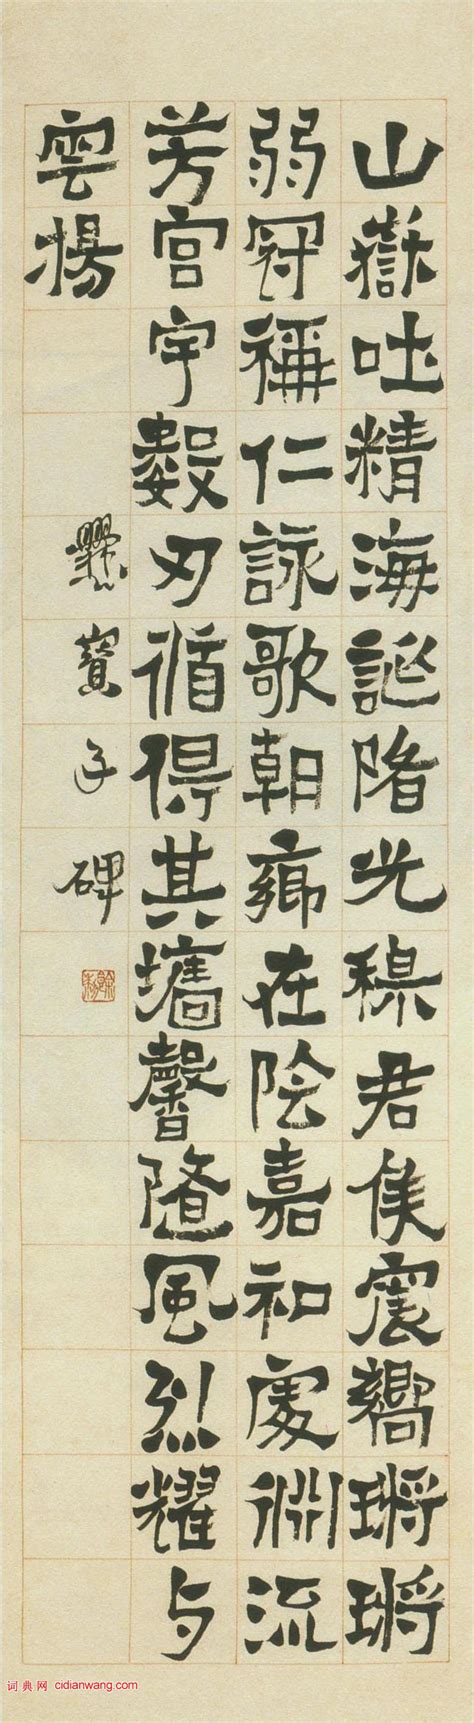 山嶽吐精海誕陼光穆君侯震響鏘鏘
弱冠稱仁詠歌朝鄉在陰嘉和處淵流
芳宮宇數刃循得其墻馨隨風烈耀与
雲揚
爨寶子碑
词典网 cidianwang.com